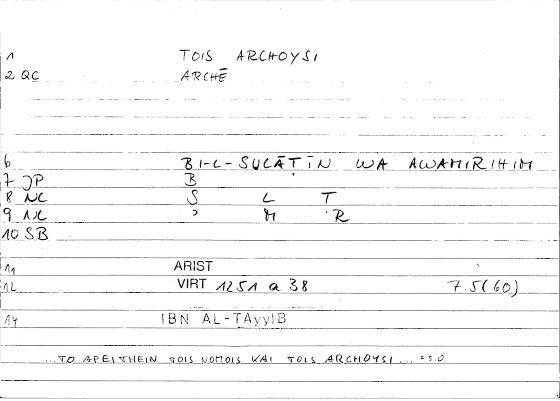 1 TOIS ARCHOYSI
2 QC ARCHĒ
6 BI-L-SULĀṬĪN WA AWAMIRIHIM
7 JP B
8 NC S L T
9 NC ʾ M R
10 SB
11 ARIST
12 VIRT 1251 a 38 7.5(60)
14 IBN AL-TAyyIB
...TO APEITHEIN TOIS NOMOIS KAI TOIS ARCHOYSI... = S.O.